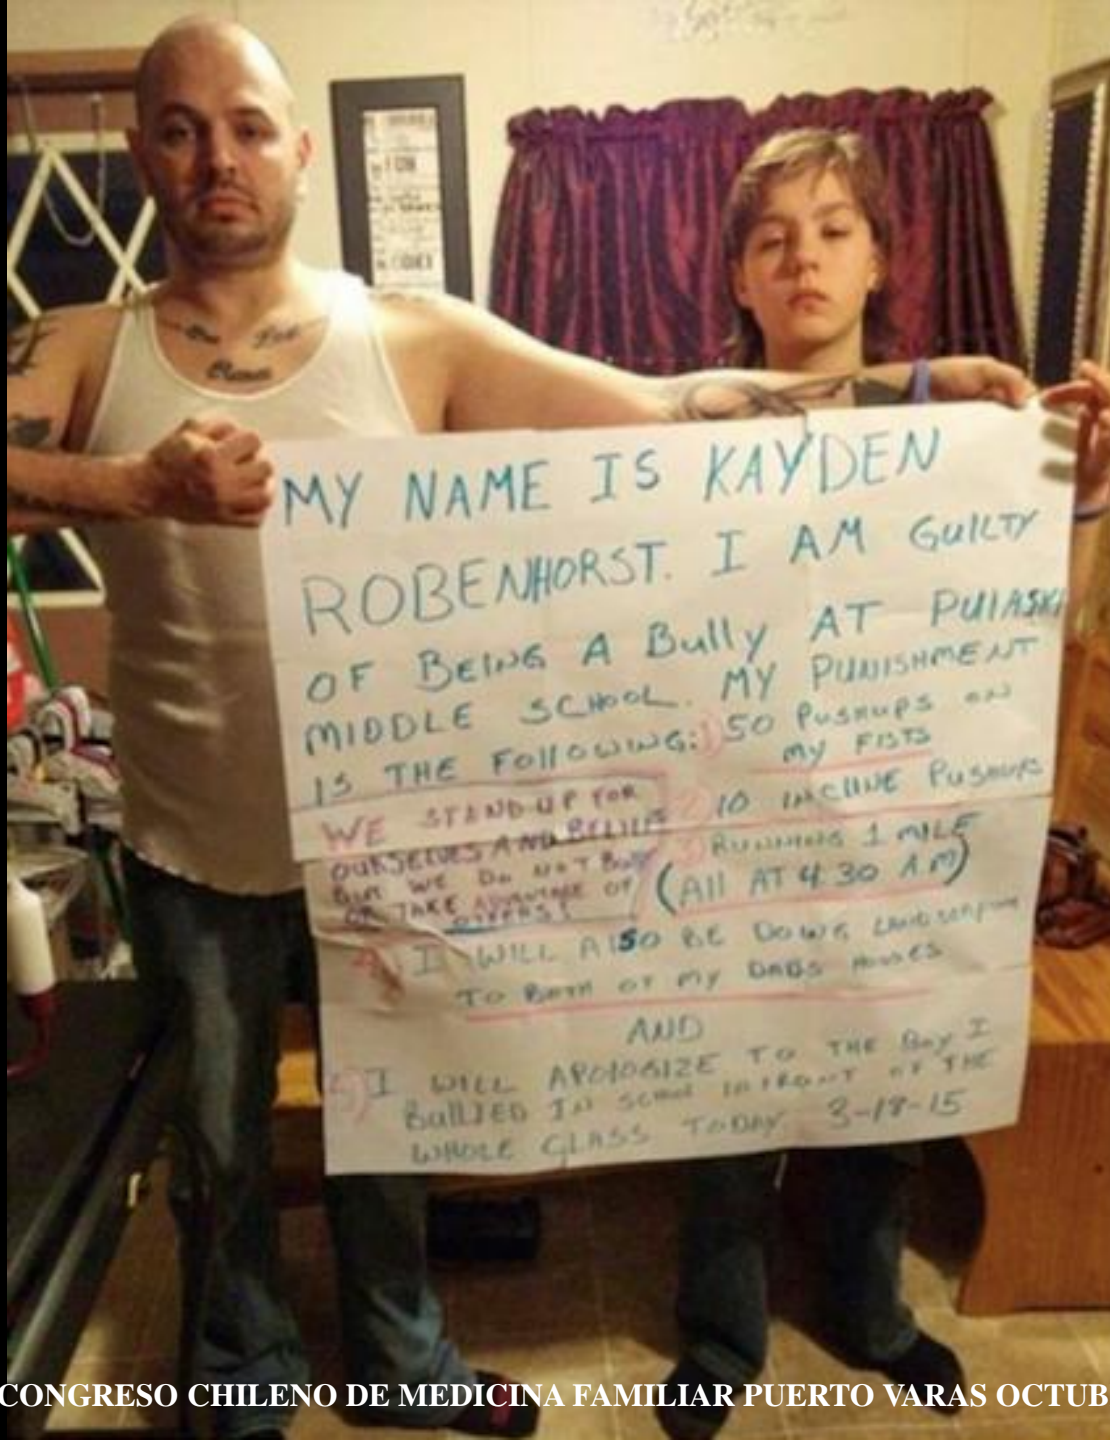 MY NAME IS KAYDEN
ROBENHORST. I AM GUILTY
OF BEING A Bully AT PUlASKI
MIDDLE SCHOOL. MY PUNISHMENT
IS THE FollOWING: 1) 50 PUSHUPS ON
MY FISTS
2) 10 INCLINE PUSHUPS
3) RUNNING 1 MILE
(All AT 4:30 AM)
WE STAND UP FOR
OURSELVES AND BELIEFS
BUT WE DO NOT Bully
OR TAKE ADVANTAGE OF
4) I WILL AlSO BE DOING LANDSCAPING
TO BOTH OF MY DADS HOUSES
AND
5) I WILL APOlOGIZE TO THE BOY I
BullIED IN SCHOOL INFRONT OF THE
WHOLE CLASS TODAY 3-18-15
CONGRESO CHILENO DE MEDICINA FAMILIAR PUERTO VARAS OCTUB